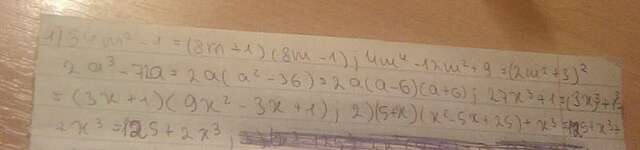 1) 64m² - 1 = (8m + 1)(8m - 1); 4m⁴ - 12m² + 9 = (2m² + 3)²
2a³ - 72a = 2a(a² - 36) = 2a(a - 6)(a + 6); 27x³ + 1 = (3x)³ + 1³
= (3x + 1)(9x² - 3x + 1); 2) (5 + x)(x² - 5x + 25) + x³ = 125 + x³ +
+ x³ = 125 + 2x³;